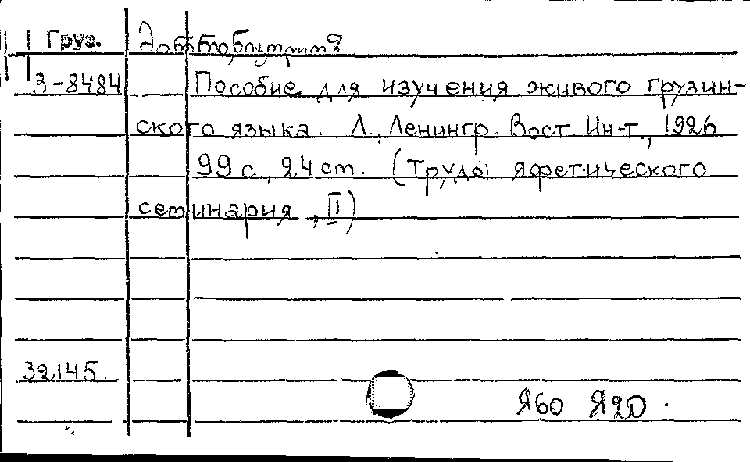 Груз.
3-8484 Пособие для изучения живого грузин-
ского языка. Л., Ленингр. Вост. Ин-т, 1926
99 с., 24 cm. (Труды яфетического
семинария, II)
32.145.
Я60 Я20.